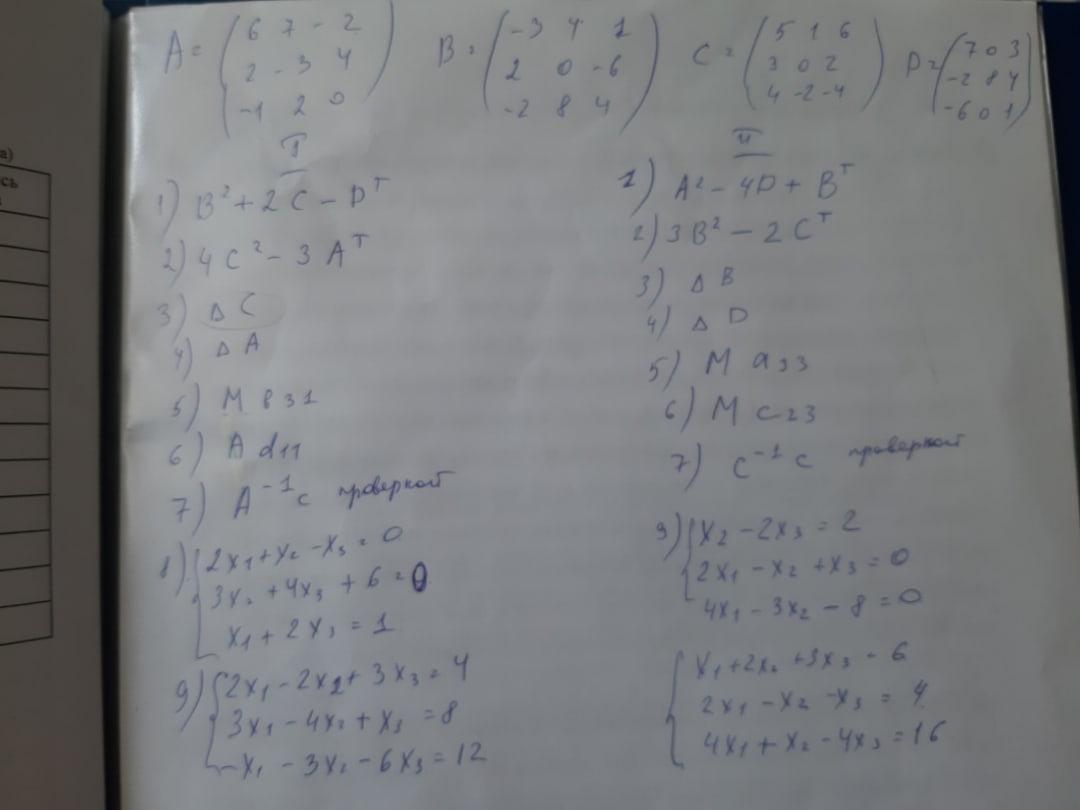 A = ( 6 7 - 2
2 - 3 4
-1 2 0 )
B = ( -3 4 1
2 0 -6
-2 8 4 )
C = ( 5 1 6
3 0 2
4 -2 -4 )
D = ( 7 0 3
-2 8 4
-6 0 1 )
I
1) B² + 2 C - Dᵀ
2) 4 C² - 3 Aᵀ
3) Δ C
4) Δ A
5) M в 31
6) A d11
7) A⁻¹ с проверкой
8) { 2x₁ + x₂ - x₃ = 0
3x₂ + 4x₃ + 6 = 0
x₁ + 2x₃ = 1
9) { 2x₁ - 2x₂ + 3x₃ = 4
3x₁ - 4x₂ + x₃ = 8
-x₁ - 3x₂ - 6x₃ = 12
II
1) A² - 4D + Bᵀ
2) 3 B² - 2 Cᵀ
3) Δ B
4) Δ D
5) M a 33
6) M c 23
7) C⁻¹ с проверкой
9) { x₂ - 2x₃ = 2
2x₁ - x₂ + x₃ = 0
4x₁ - 3x₂ - 8 = 0
{ x₁ + 2x₂ + 3x₃ - 6
2x₁ - x₂ - x₃ = 4
4x₁ + x₂ - 4x₃ = 16
а)
сь